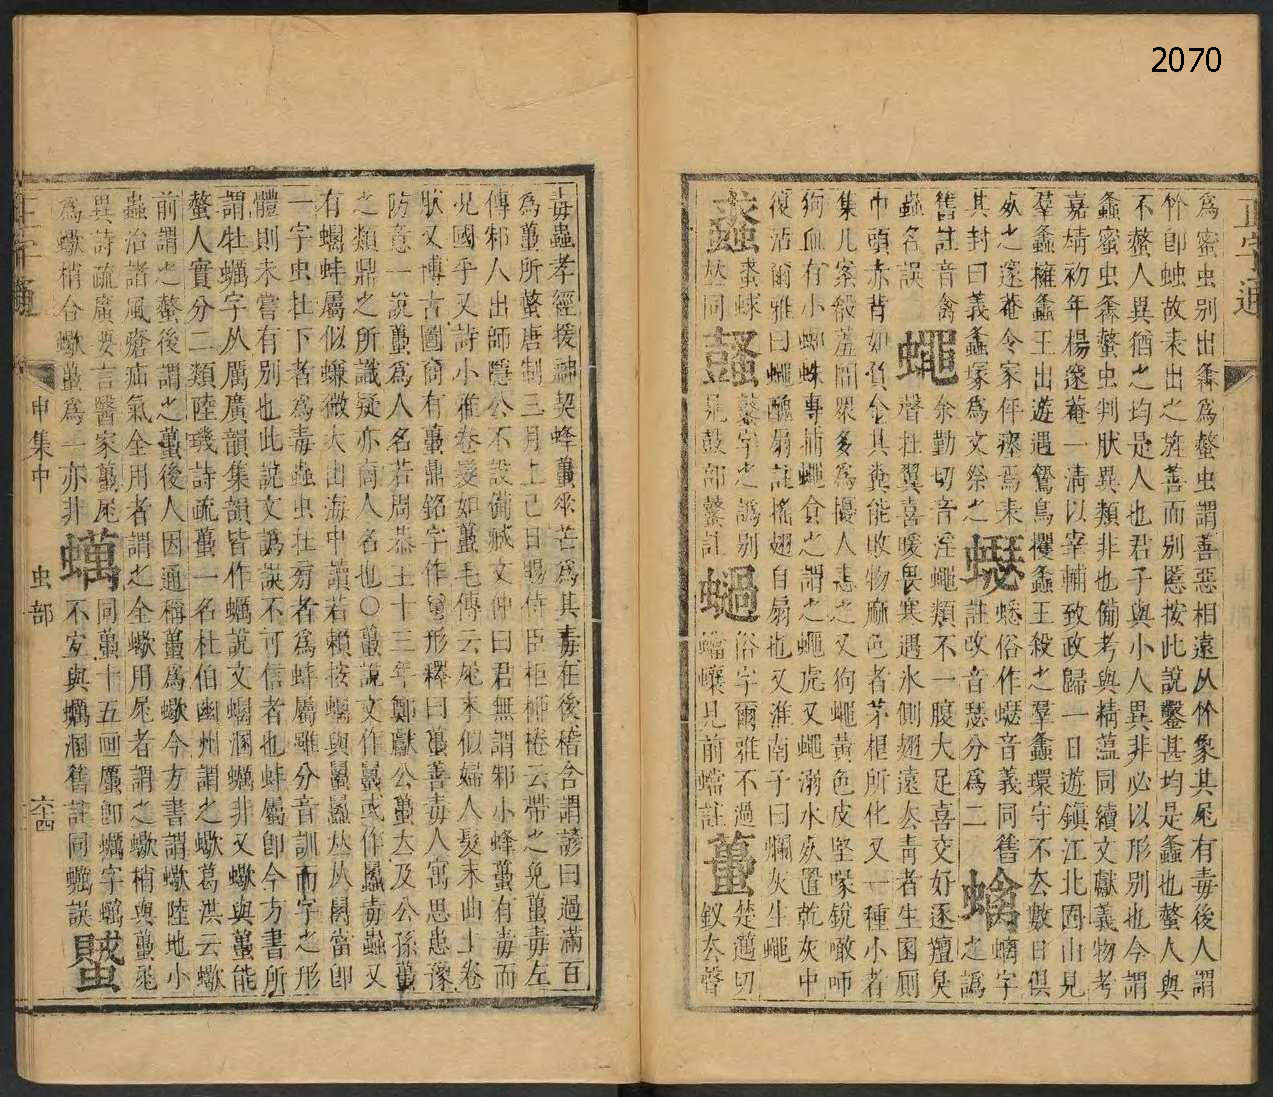 2070
爲蜜虫别出螽爲螫虫謂善惡相遠从夆象其尾有毒後人謂
夆卽蚀故夆出之旌善而别慝按此說鑿甚均是螽也螫人與
不螫人異猶之均是人也君子與小人異非必以形别也今謂
螽蜜虫螽螫虫判肰異類非也備考與精蕰同續文獻義物考
嘉靖初年楊邃菴一淸以宰輔致政歸一日遊鎭江北固山見
羣螽擁螽王出遊遇鷙鳥攫螽王殺之羣螽環守不厺數日俱
死之邃菴令家伻瘞焉爲文祭之
其封曰義螽塚爲文祭之 蟋 蟋俗作蟋音義同舊註改音瑟分爲二 蠄 蠄字之譌
舊註音禽
蟲名誤 蠅 余勤切音淫蠅類不一腹大足喜交好逐羶臭
聲在翼喜暖畏寒遇氷側翅遠厺靑者生圊厠
巾頭赤背如負金其糞能敗物麻色者茅根所化又一種小者
集几案殽羞間衆多爲擾人恚之又狗蠅黃色皮堅喙銳噉咂
狗血有小蜘蛛專捕蠅食之謂之蠅虎又蠅溺水死置乾灰中
復活爾雅曰蠅醜扇註搖翅自扇也又淮南子曰爛灰生蠅
蝨 蝨蛷
𠀤同 鼜 鼜字之譌别
見鼓部鼜註 蠅 俗字爾雅不過
蟷蠰見前蟷註 蠆 楚邁切
釵厺聲
毒蟲孝經援神契蜂蠆垂芒爲其毒在後稽含謂諺曰過滿百
爲蠆所螫唐制三月上巳日賜侍臣柜柳棬云帶之免蠆毒左
傳邾人出師隱公不設備臧文仲曰君無謂邾小蜂蠆有毒而
况國乎又詩小雅卷髮如蠆毛傳云尾末似婦人髮末曲上卷
肰又博古圖商有蠆鼎銘字作蠆形釋曰蠆善毒人寓思患豫
防意一說蠆爲人名若周恭王十三年鄭獻公蠆厺及公孫蠆
之類鼎之所識疑亦商人名也○蠆說文作蠆或作䘍毒蟲又
有蠣蚌屬似螊微大出海中讀若賴按蠣與蠆𠀤从萬當卽
一字虫在下者爲毒蟲虫在旁者爲蚌屬雖分音訓而字之形
體則未嘗有别也此說文譌誤不可信者也蚌屬卽今方書所
謂牡蠣字从厲廣韻集韻皆作蠣說文蠣溷蠣非又蠍與蠆能
螫人實分二類陸璣詩疏蠆一名杜伯幽州謂之蠍葛洪云蠍
前謂之螫後謂之蠆後人因通稱蠆爲蠍今方書謂蠍陸地小
蟲治諸風瘡疝氣全用者謂之全蠍用尾者謂之蠍梢與蠆尾
異詩疏廣要言醫家蠆尾
爲蠍梢合蠍蠆爲一亦非 蠇 同蠆十五画厲卽蠣字蠇
不宐與蠣溷舊註同蠣誤 蠈
申集中 虫部 六十四
正字通